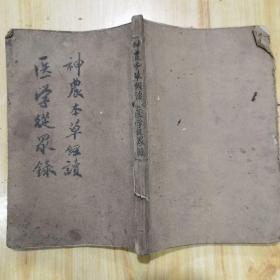 神農本草经讀
医学從眾錄
神農本草经讀 医学從眾錄